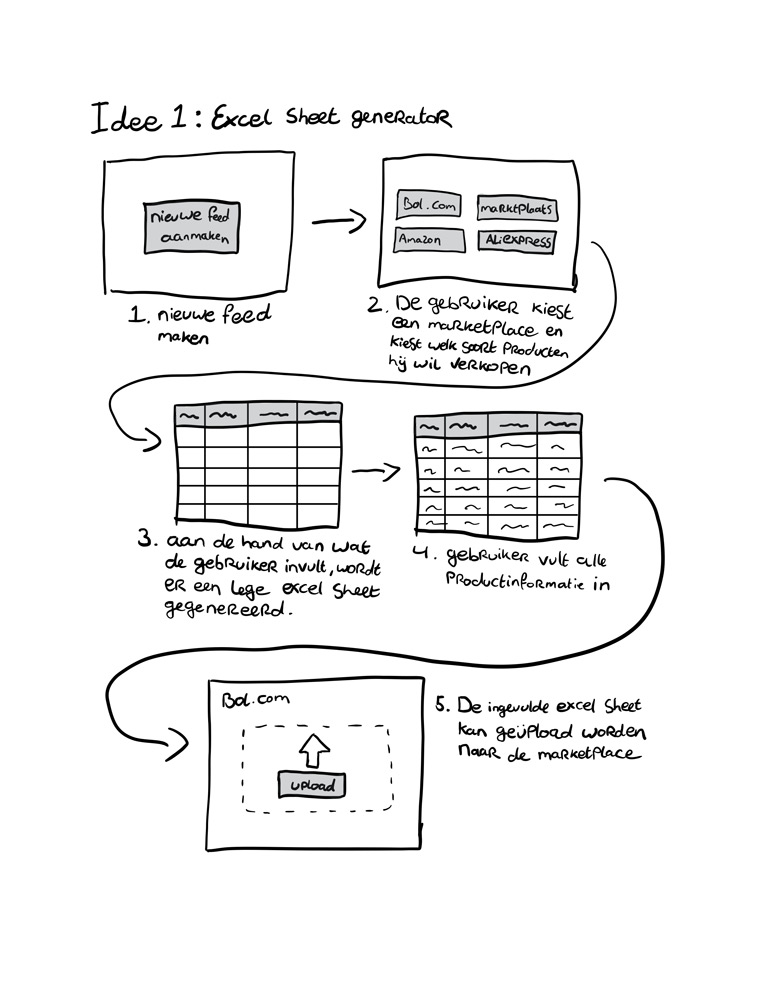 Idee 1: Excel sheet generator
nieuwe feed
aanmaken
Bol.com
marktplaats
Amazon
ALiexpress
1. nieuwe feed
maken
2. De gebruiker kiest
een marketplace en
kiest welk soort producten
hij wil verkopen
3. aan de hand van wat
de gebruiker invult, wordt
er een lege excel sheet
gegenereerd.
4. gebruiker vult alle
productinformatie in
Bol.com
upload
5. De ingevulde excel sheet
kan geüpload worden
naar de marketplace